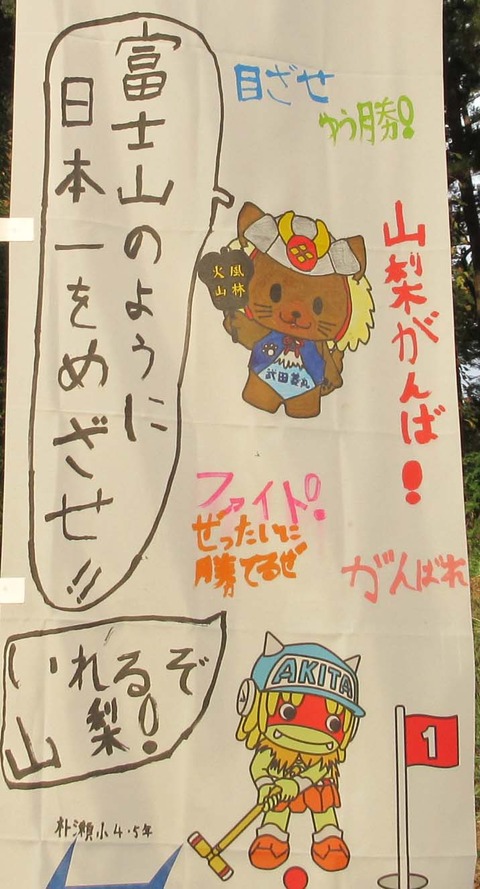 富士山のように
日本一をめざせ!!
目ざせ
ゆう勝!
山梨がんば!
風林
火山
武田菱丸
ファイト!
ぜったいに
勝てるぜ
がんばれ
いれるぞ
山梨!
AKITA
1
朴瀬小4・5年